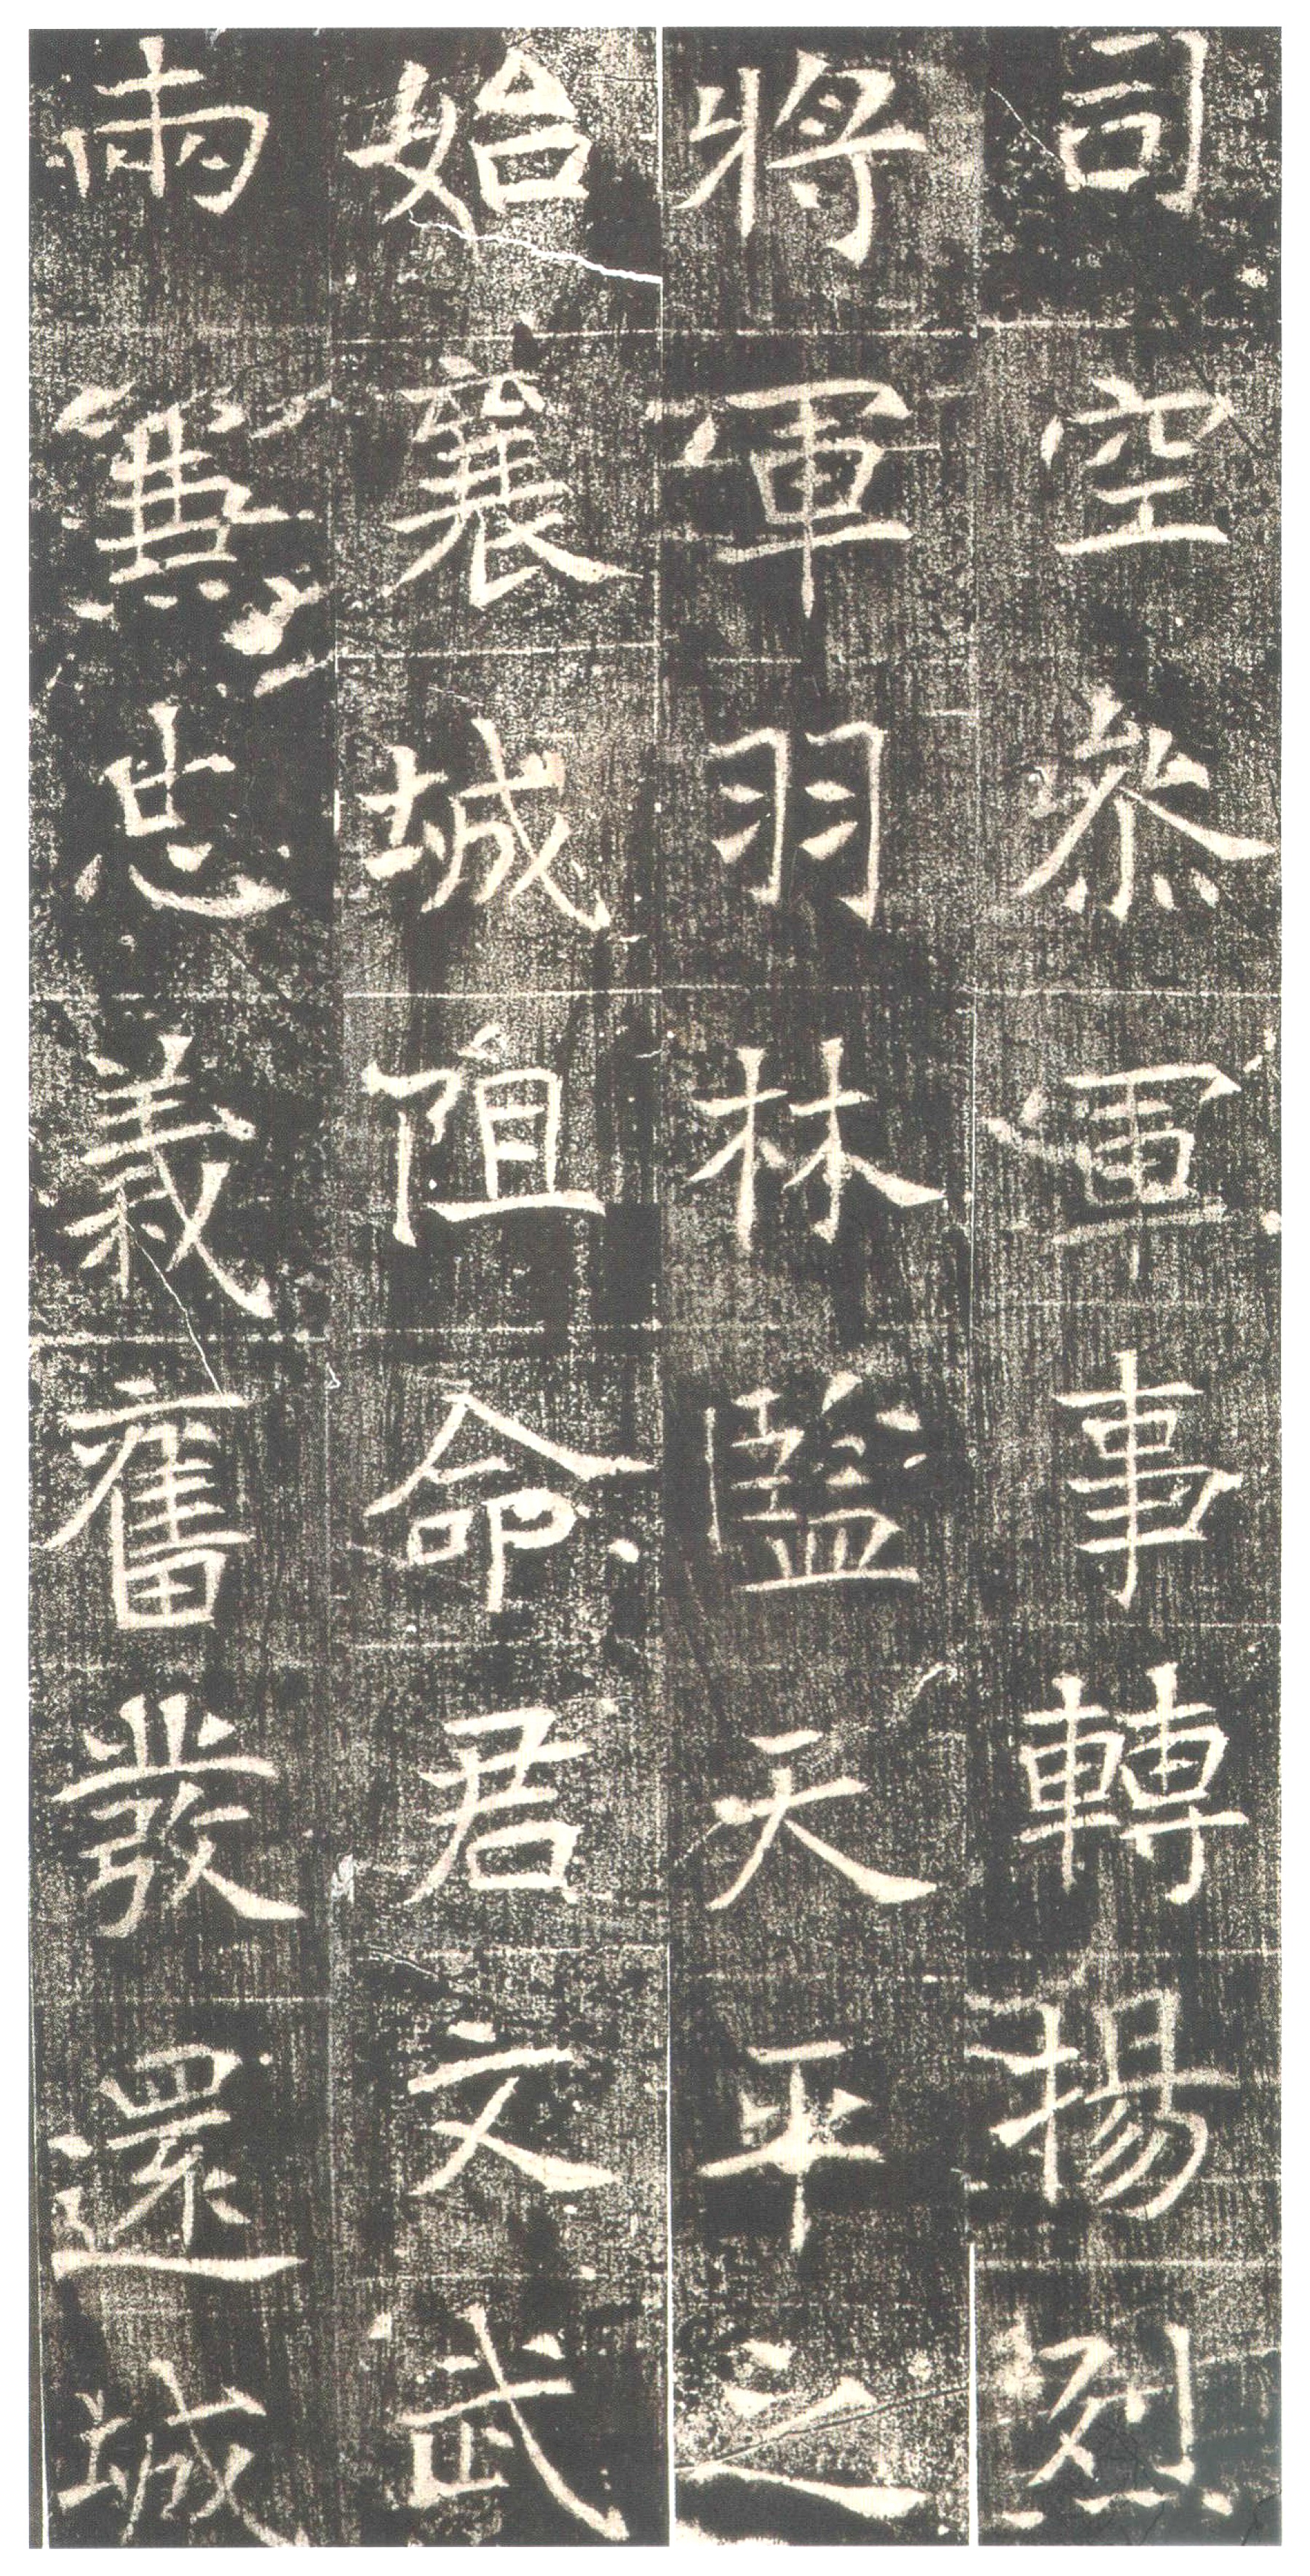 司空叅軍事轉揚烈
將軍羽林監天平之
始襄城阻命君文武
兩兼忠義舊發還城